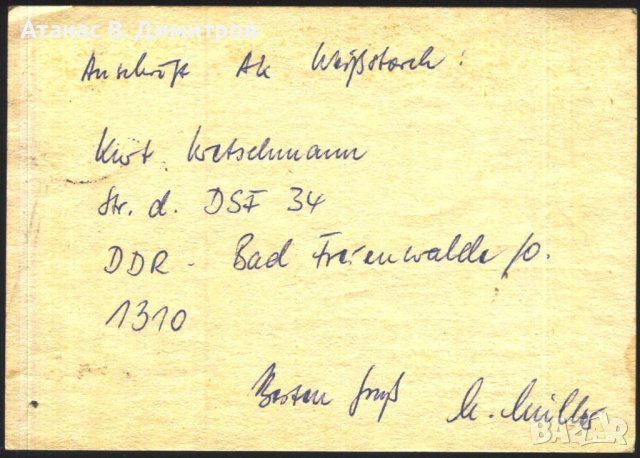 Атанас В. Димитров
Anschrift AK Weißstorch:
Kurt Kretschmann
Str. d. DSF 34
DDR - Bad Freienwalde /O.
1310
Besten Gruß M. Müller
BAZAR